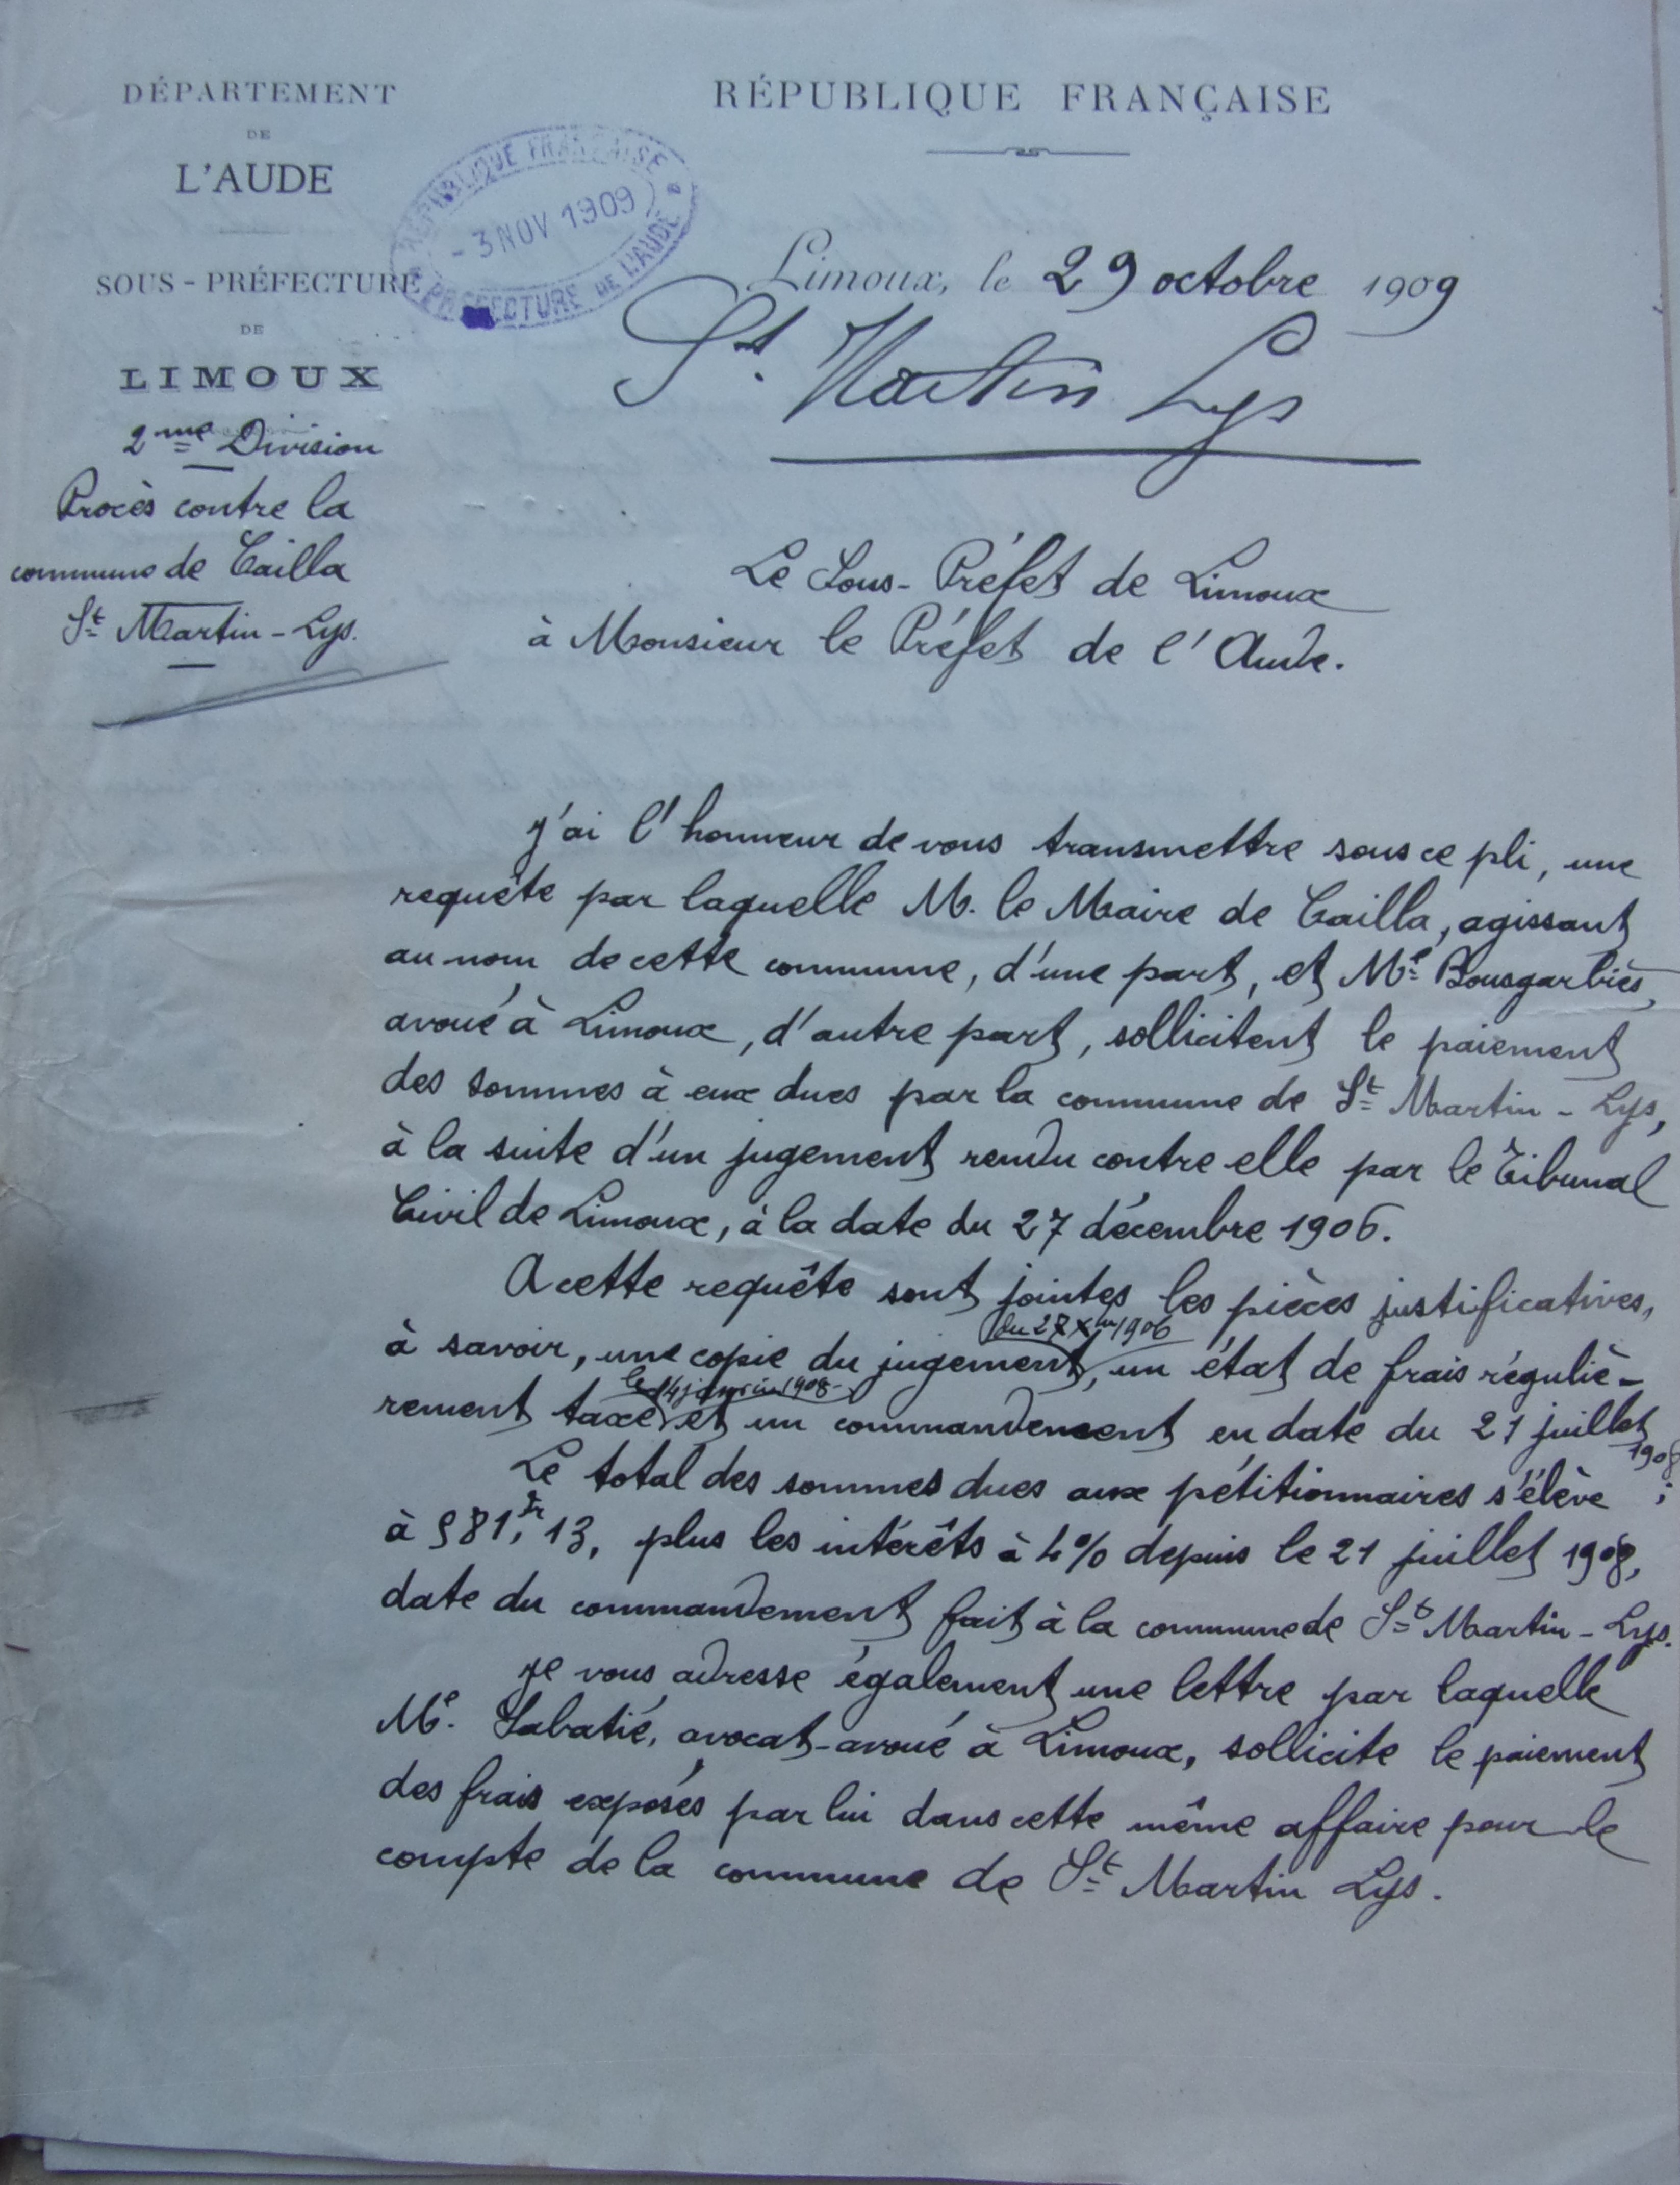 DÉPARTEMENT
DE
L'AUDE
SOUS-PRÉFECTURE
DE
LIMOUX
2me Division
Procès contre la
commune de Cailla
St Martin-Lys.
RÉPUBLIQUE FRANÇAISE
RÉPUBLIQUE FRANÇAISE
- 3 NOV 1909
PRÉFECTURE DE L'AUDE
Limoux, le 29 octobre 1909
St. Martin Lys
Le Sous-Préfet de Limoux
à Monsieur le Préfet de l'Aude.
J'ai l'honneur de vous transmettre sous ce pli, une
requête par laquelle M. le Maire de Cailla, agissant
au nom de cette commune, d'une part, et Me Bousgarbiès,
avoué à Limoux, d'autre part, sollicitent le paiement
des sommes à eux dues par la commune de St Martin-Lys,
à la suite d'un jugement rendu contre elle par le Tribunal
Civil de Limoux, à la date du 27 décembre 1906.
A cette requête sont jointes les pièces justificatives,
du 27 Xbre 1906
à savoir, une copie du jugement, un état de frais réguliè-
le 14 janvier 1908
rement taxé et un commandement en date du 21 juillet
1908
Le total des sommes dues aux pétitionnaires s'élève
à 981,fr 13, plus les intérêts à 4% depuis le 21 juillet 1908,
date du commandement fait à la commune de St Martin-Lys.
Je vous adresse également une lettre par laquelle
Me. Sabatié, avocat-avoué à Limoux, sollicite le paiement
des frais exposés par lui dans cette même affaire pour le
compte de la commune de St Martin Lys.